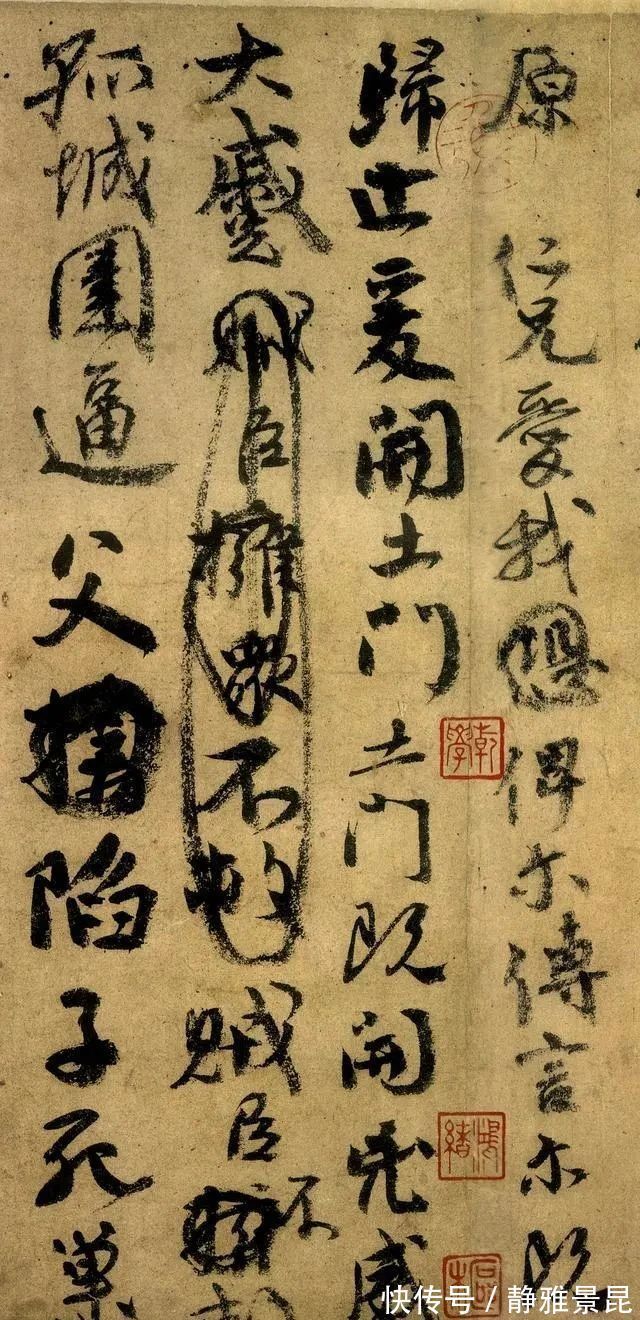 原仁兄愛我恐俾尔傳言尔既
歸止爰開土門土門既開兇威
大蹙賊臣擁衆不救賊臣不救
孤城圍逼父陷子死巢
乾學
鴻緒
快传号 / 静雅景昆